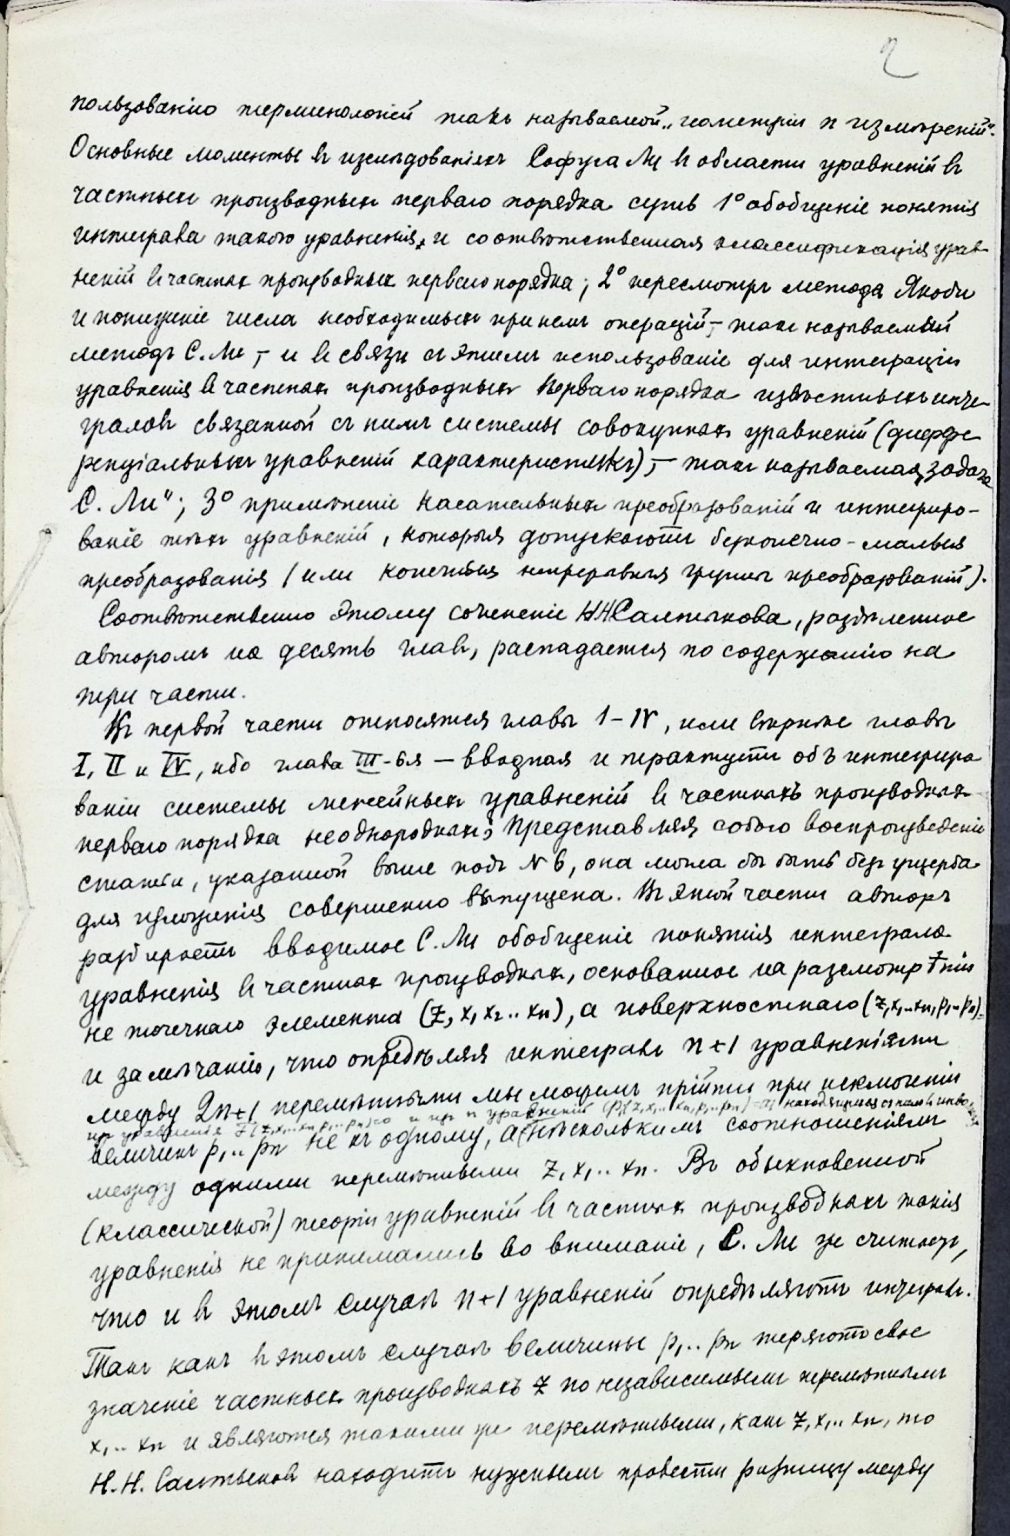 2
пользованію терминологіей такъ называемой „геометріи n измѣреній".
Основные моменты въ изслѣдованіяхъ Софуса Ли въ области уравненій въ
частныхъ производныхъ перваго порядка суть 1° обобщеніе понятія
интеграла такого уравненія, и соотвѣтственная классификація урав-
неній въ частныхъ производныхъ перваго порядка; 2° пересмотръ метода Якоби
и пониженіе числа необходимыхъ при немъ операцій, – такъ называемый
методъ С. Ли, – и въ связи съ этимъ использованіе для интеграціи
уравненія въ частныхъ производныхъ перваго порядка извѣстныхъ инте-
граловъ связанной съ нимъ системы совокупныхъ уравненій (диффе
ренціальныхъ уравненій характеристикъ), – такъ называемая „задача
С. Ли"; 3° примѣненіе касательныхъ преобразованій и интегриро-
ваніе тѣхъ уравненій, которыя допускаютъ безконечно-малыя
преобразованія (или конечныя непрерывныя группы преобразованій).
Соотвѣтственно этому сочиненіе Н.Н. Салтыкова, раздѣленное
авторомъ на десять главъ, распадается по содержанію на
три части.
Къ первой части относятся главы I–IV, или вѣрнѣе главы
I, II и IV, ибо глава III-ья — вводная и трактуетъ объ интегриро
ваніи системы линейныхъ уравненій въ частныхъ производныхъ
перваго порядка неоднородныхъ; представляя собою воспроизведеніе
статьи, указанной выше подъ № 6, она могла бы быть безъ ущерба
для изложенія совершенно выпущена. Въ этой части авторъ
разбираетъ вводимое С. Ли обобщеніе понятія интеграла
уравненія въ частныхъ производныхъ, основанное на разсмотрѣніи
не точечнаго элемента (z, x₁ x₂ .. xn), а поверхностнаго (z, x₁ .. xn, p₁ .. pn)
и замѣчаніи, что опредѣляя интегралъ n+1 уравненіями
между 2n+1 перемѣнными мы можемъ прійти при исключеніи
изъ уравненія F(z, x₁ .. xn, p₁ .. pn)=0 и изъ n уравненій
величинъ p₁ .. pn не къ одному, а нѣсколькимъ соотношеніямъ
между одними перемѣнными z, x₁ .. xn. Въ обыкновенной
(классической) теоріи уравненій въ частныхъ производныхъ такія
уравненія не принимались во вниманіе, С. Ли же считаетъ,
что и въ этомъ случаѣ n+1 уравненій опредѣляютъ интегралъ.
Такъ какъ въ этомъ случаѣ величины p₁ .. pn теряютъ свое
значеніе частныхъ производныхъ z по независимымъ перемѣннымъ
x₁ .. xn и являются такими же перемѣнными, какъ z, x₁ .. xn, то
Н. Н. Салтыковъ находитъ нужнымъ провести разницу между